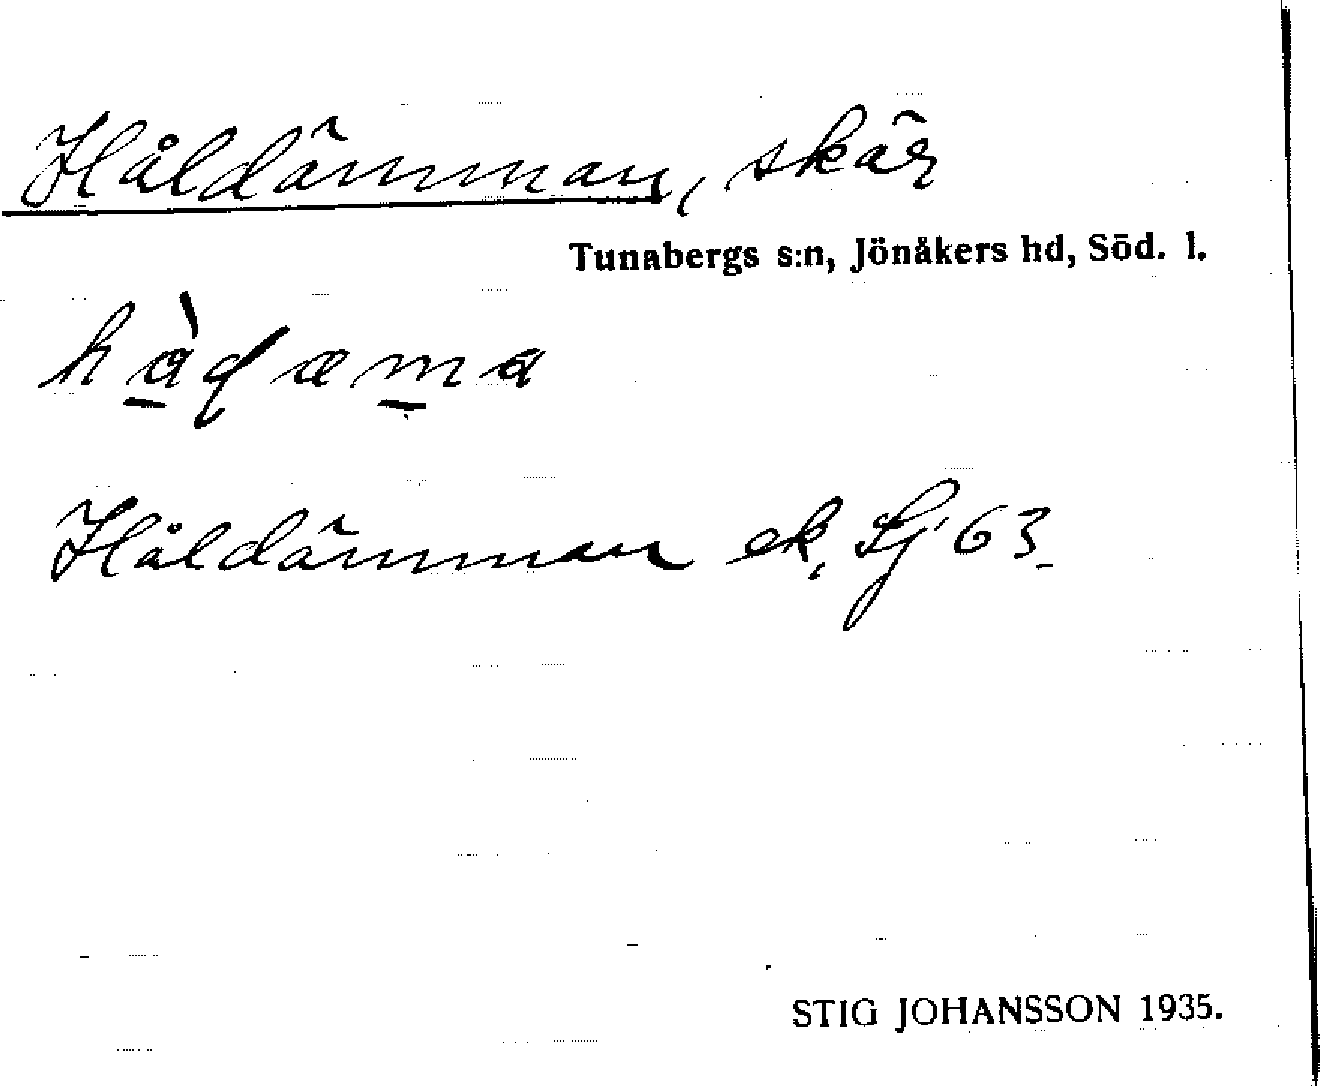 Håldämman, skär
Tunabergs s:n, Jönåkers hd, Söd. l.
Håldämman ek. Sj 63.
STIG JOHANSSON 1935.